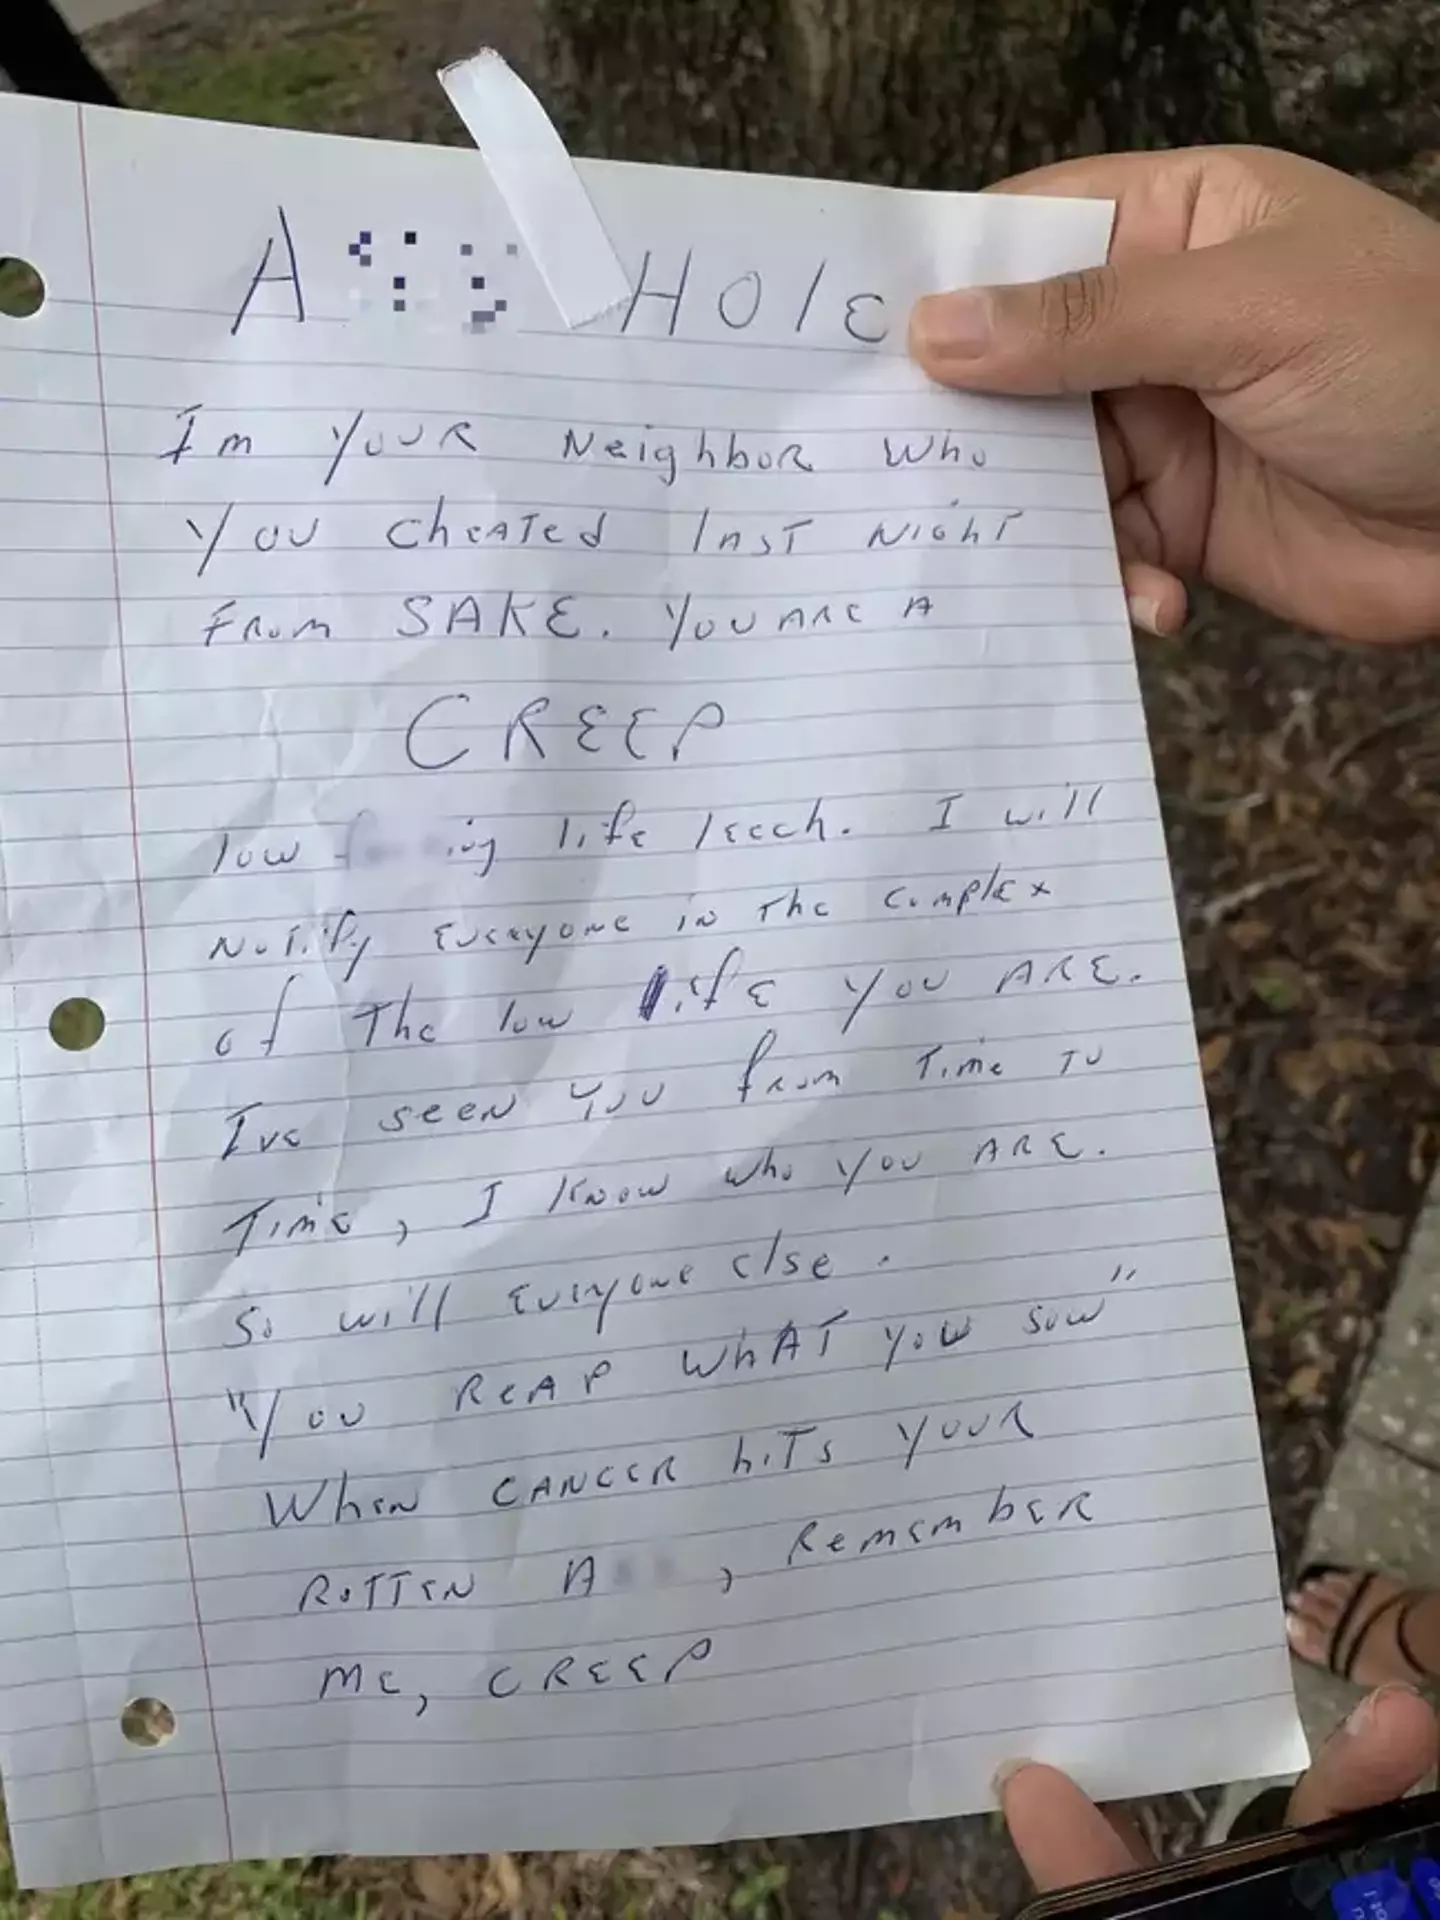 A HOlE
Im YOUR Neighbor Who
YOU cheATed lAST NIGhT
FRom SAKE. YOU ARE A
CREEP
low f ing life leech. I will
Notify Everyone in The complex
of The low life YOU ARE.
I've seen You from Time To
Time, I Know who YOU ARE.
So will Everyone else.
"YOU REAP WhAT YOU SOW"
When CANCER hiTs YOUR
ROTTEN A , RemembER
ME, CREEP